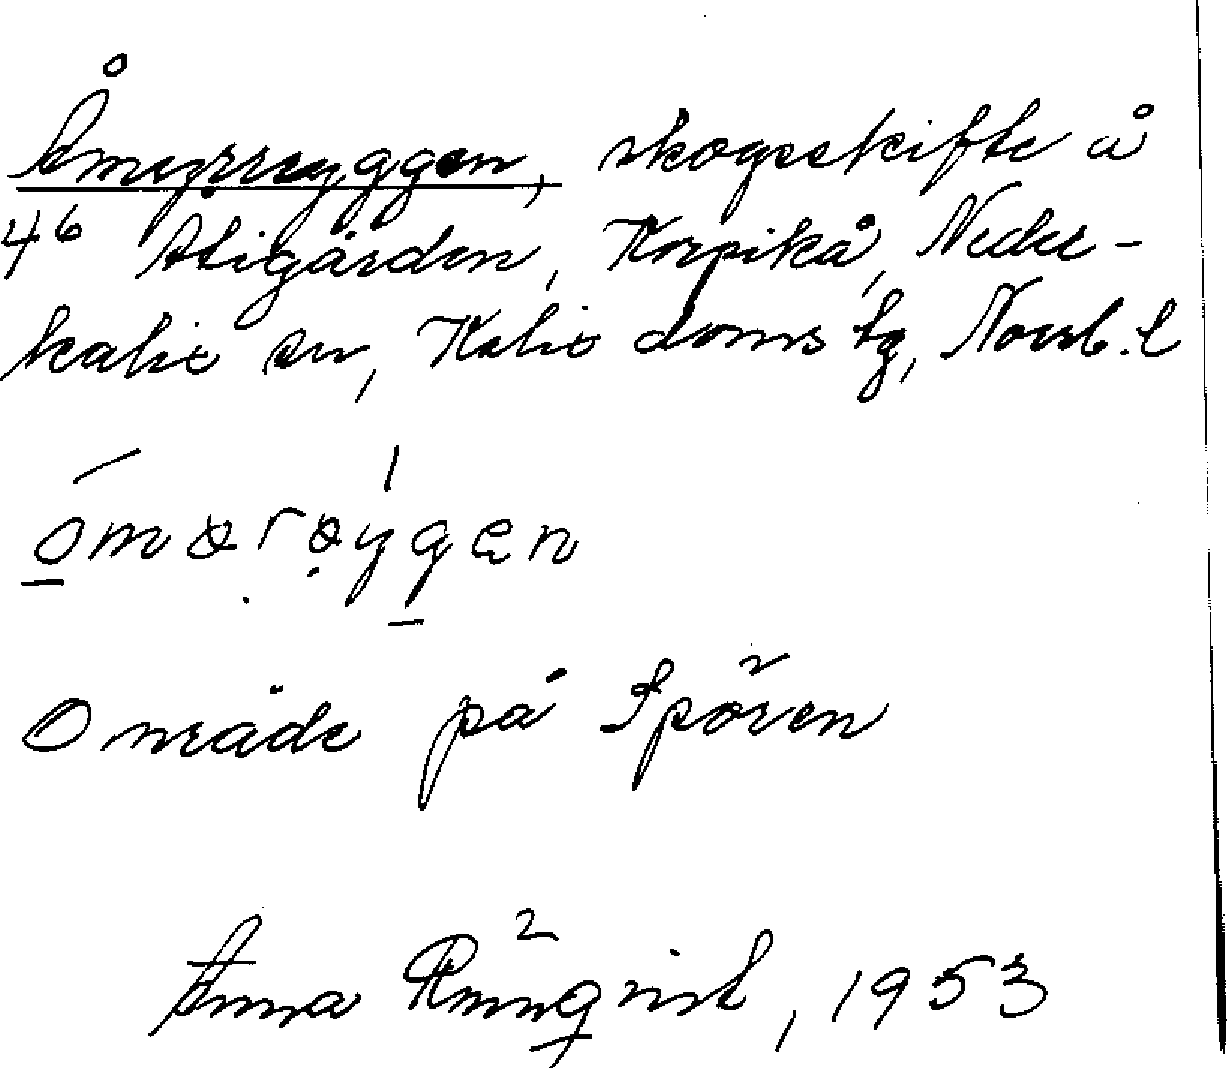 Åmyrryggen, skogsskifte å
4⁶ Stigården, Korpikå, Neder-
kalix sn, Kalix doms tg, Norrb. l
område på Spören
Anna Rönnqvist, 1953